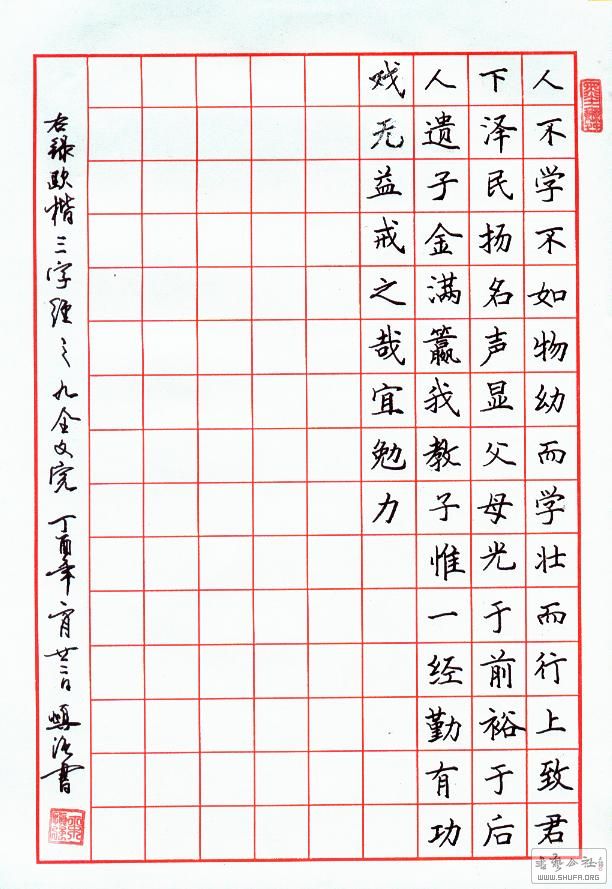 人不学不如物幼而学壮而行上致君
下泽民扬名声显父母光于前裕于后
人遗子金满籯我教子惟一经勤有功
戏无益戒之哉宜勉力
右录欧楷三字经之九全文完 丁酉年 月廿二日 书
书艺公社
WWW.SHUFA.ORG